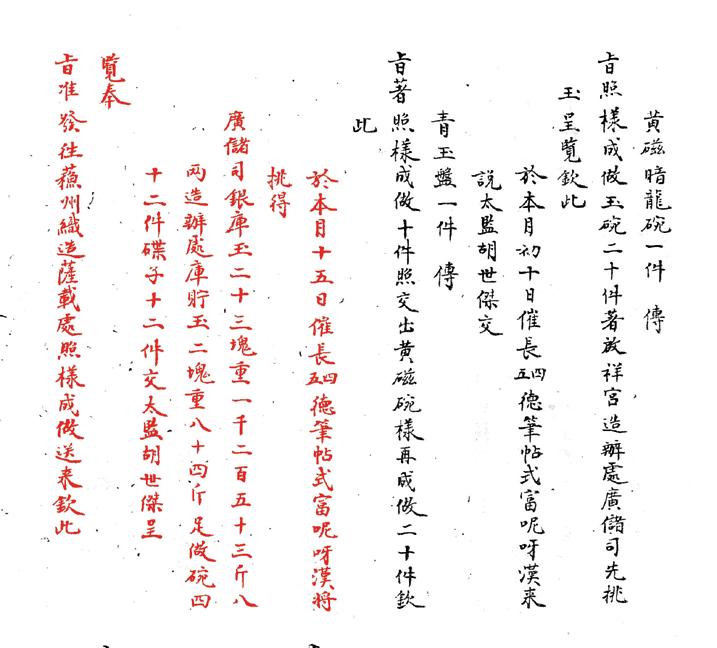 黃磁暗龍碗一件　傳
旨照樣成做玉碗二十件著放祥宮造辦處廣儲司先挑
玉呈覽欽此
於本月初十日催長四五德筆帖式富呢呀漢來
說太監胡世傑交
青玉盤一件　傳
旨著照樣成做十件照交出黃磁碗樣再成做二十件欽
此
於本月十五日催長四五德筆帖式富呢呀漢將
挑得
廣儲司銀庫玉二十三塊重一千二百五十三斤八
两造辦處庫貯玉二塊重八十四斤足做碗四
十二件碟子十二件交太監胡世傑呈
覽奉
旨准發往蘓州織造薩載處照樣成做送來欽此